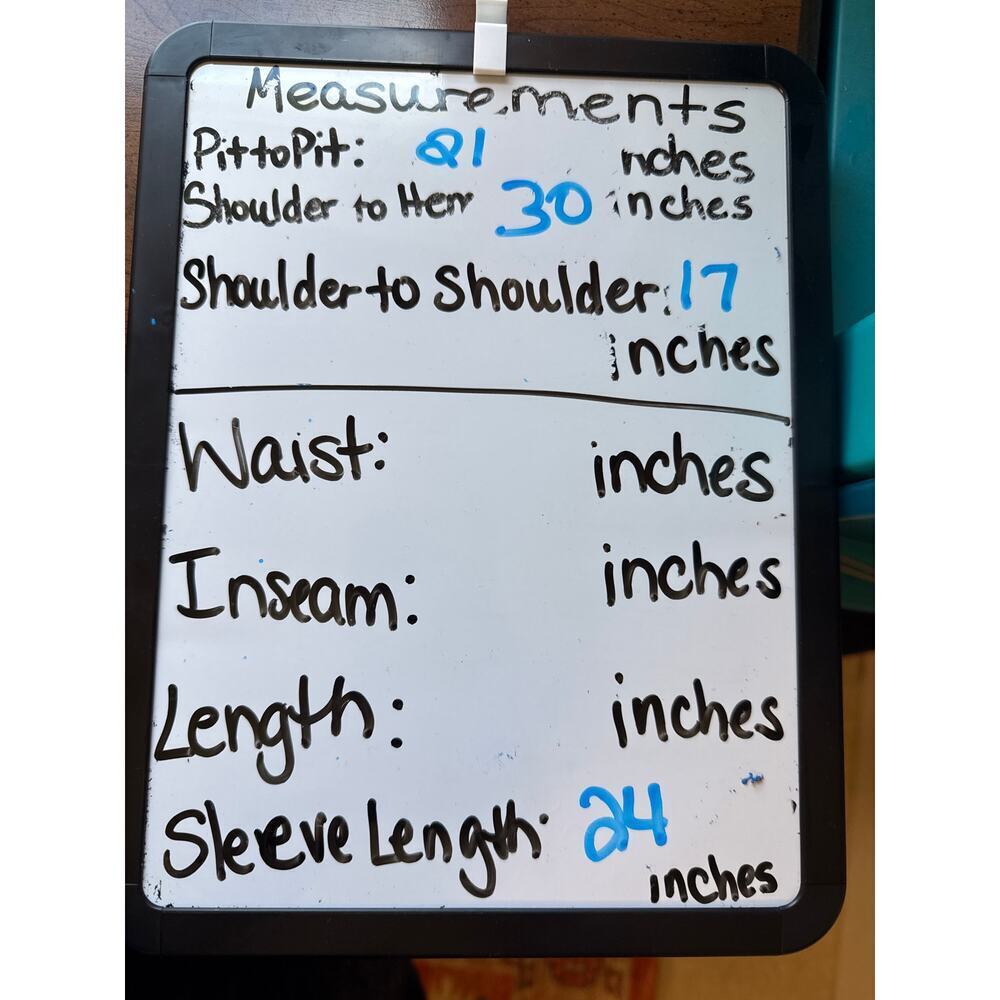 Measurements
Pit to Pit: 21 nches
Shoulder to Hem 30 inches
Shoulder to Shoulder: 17
inches
Waist: inches
Inseam: inches
Length: inches
Sleeve Length: 24
inches